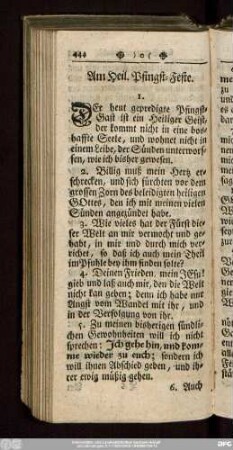 444 ❀ ) o ( ❀
Am Heil. Pfingst-Feste.
1.
DEr heut gepredigte Pfingst-
Gast ist ein Heiliger Geist,
der kommt nicht in eine bos-
haffte Seele, und wohnet nicht in
einem Leibe, der Sünden unterworf-
fen, wie ich bisher gewesen.
2. Billig muß mein Hertz er-
schrecken, und sich fürchten vor dem
grossen Zorn des beleidigten heiligen
GOttes, den ich mit meinen vielen
Sünden angezündet habe.
3. Wie vieles hat der Fürst die-
ser Welt an mir vermocht und ge-
habt, in mir und durch mich ver-
richtet, so daß ich auch mein Theil
im Pfuhle bey ihm finden solte?
4. Deinen Frieden, mein JEsu!
gieb und laß auch mir, den die Welt
nicht kan geben; denn ich habe nur
Angst vom Wandel mit ihr, und
in der Verfolgung von ihr.
5. Zu meinen bisherigen sündli-
chen Gewohnheiten will ich nicht
sprechen: Ich gehe hin, und kom-
me wieder zu euch; sondern ich
will ihnen Abschied geben, und ih-
rer ewig müßig gehen.
6. Auch